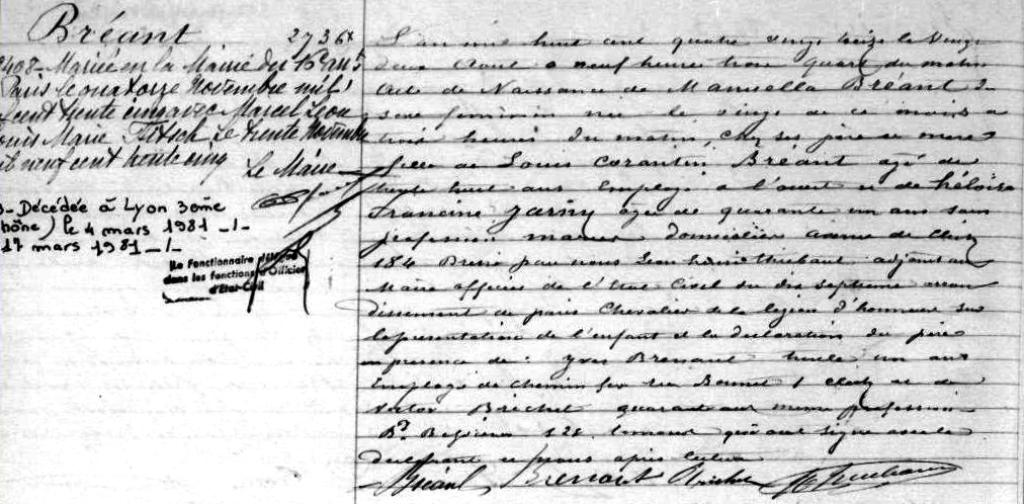 Bréant
2736
2408. Mariée en la Mairie du
Paris le quatorze Novembre mil
neuf cent trente cinq avec Marcel Léon
Louis Marie le trente Novembre
mil neuf cent trente cinq
Le Maire
Décédée à Lyon 3eme
(Rhône) le 4 mars 1981 _/_
17 mars 1981 _/_
Le Fonctionnaire
dans les fonctions d'Officier
d'Etat-Civil
L'an mil huit cent quatre vingt treize le vingt
deux Aout a neuf heures trois quarts du matin
Acte de Naissance de Manuella Bréant du
sexe féminin née le vingt de ce mois a
trois heures du matin, chez ses père et mere
fille de Louis Corantin Bréant agé de
trente huit ans Employé a l'ouest et de héloise
Francine Jarny agée de quarante un ans sans
profession mariés domiciliés avenue de Clichy
184 Dressé par nous Léon Thibault adjoint au
Maire officier de l'Etat Civil du dix septieme arron
dissement de paris Chevalier de la legion d'honneur sur
la présentation de l'enfant et la déclaration du père
en présence de : Yves Brenaut trente un ans
Employé de chemin fer rue Bonnet 1 Clichy et de
Victor Brichet quarante ans meme profession
Bd Bessières 128. temoins qui ont signé avec le
declarant et nous apres lecture
Bréant Brenaut Brichet